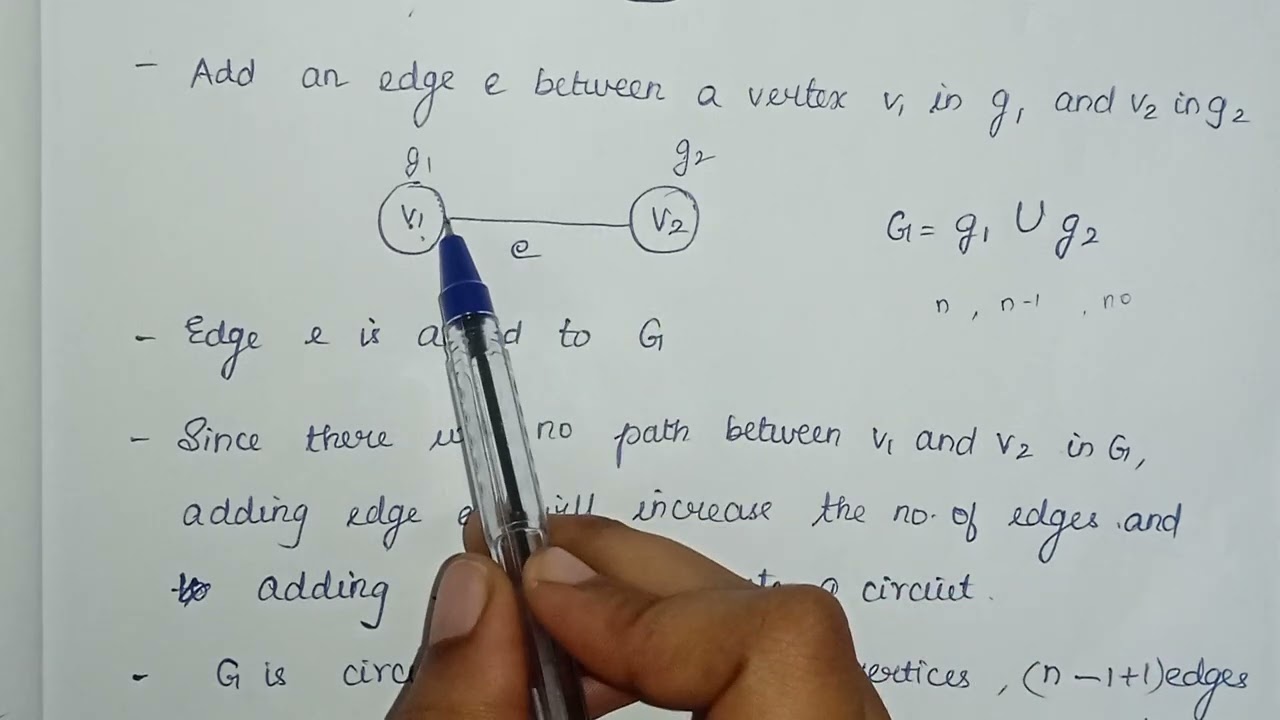 - Add an edge e between a vertex v₁ in g₁ and v₂ in g₂
g₁ g₂
v₁ v₂
e
G = g₁ ∪ g₂
n , n-1 , no
- Edge e is to G
- Since there no path between v₁ and v₂ in G,
adding edge will increase the no. of edges and
adding a circiut.
- G is , (n-1+1)edges